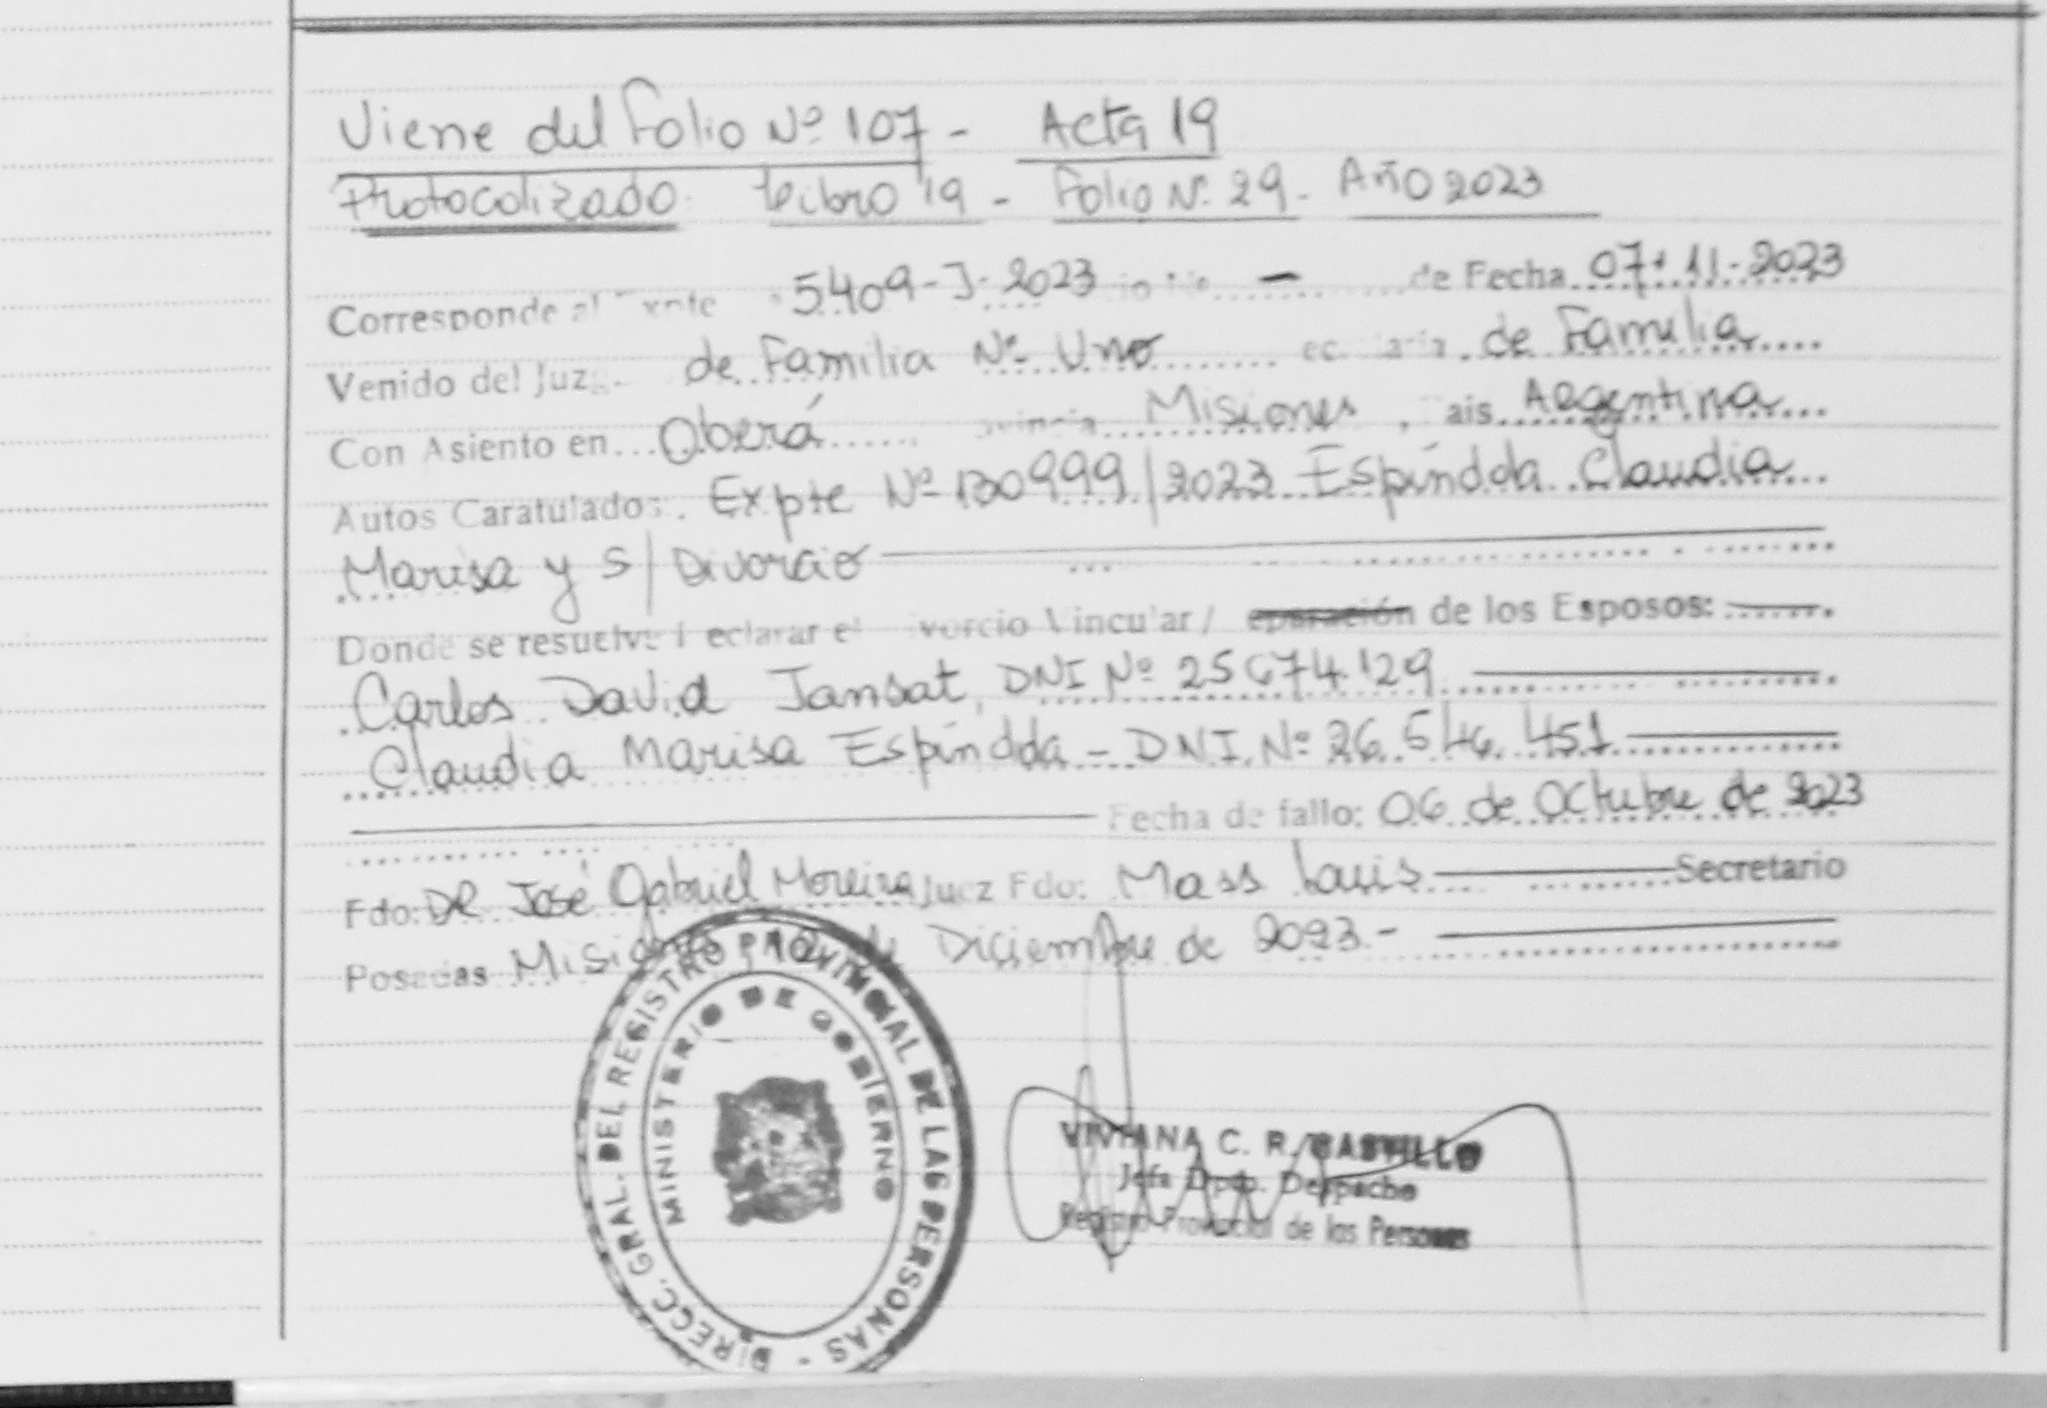 Viene del Folio Nº 107 - Acta 19
Protocolizado: Libro 19 - Folio Nº 29 - Año 2023
Corresponde al Expte 5409-J-2023 - de Fecha 07-11-2023
Venido del Juzg. de Familia Nº Uno de Familia
Con Asiento en Oberá Misiones, Pais Argentina
Autos Caratulados: Expte Nº 130999/2023 Espíndola Claudia
Marisa y S/ Divorcio
Donde se resuelve Declarar el Divorcio Vincular / eparación de los Esposos:
Carlos David Jansat, DNI Nº 25674129
Claudia Marisa Espíndola - DNI. Nº 26.546.451
Fecha de fallo: 06 de Octubre de 2023
Fdo: DR José Gabriel Moreira Juez Fdo: Mass Louis Secretario
Posadas Misiones, de Diciembre de 2023.-
DIRECC. GRAL. DEL REGISTRO PROVINCIAL DE LAS PERSONAS -
MINISTERIO DE GOBIERNO
VIVIANA C. R. CASTILLO
Jefa Dpto. Despacho
Registro Provincial de las Personas